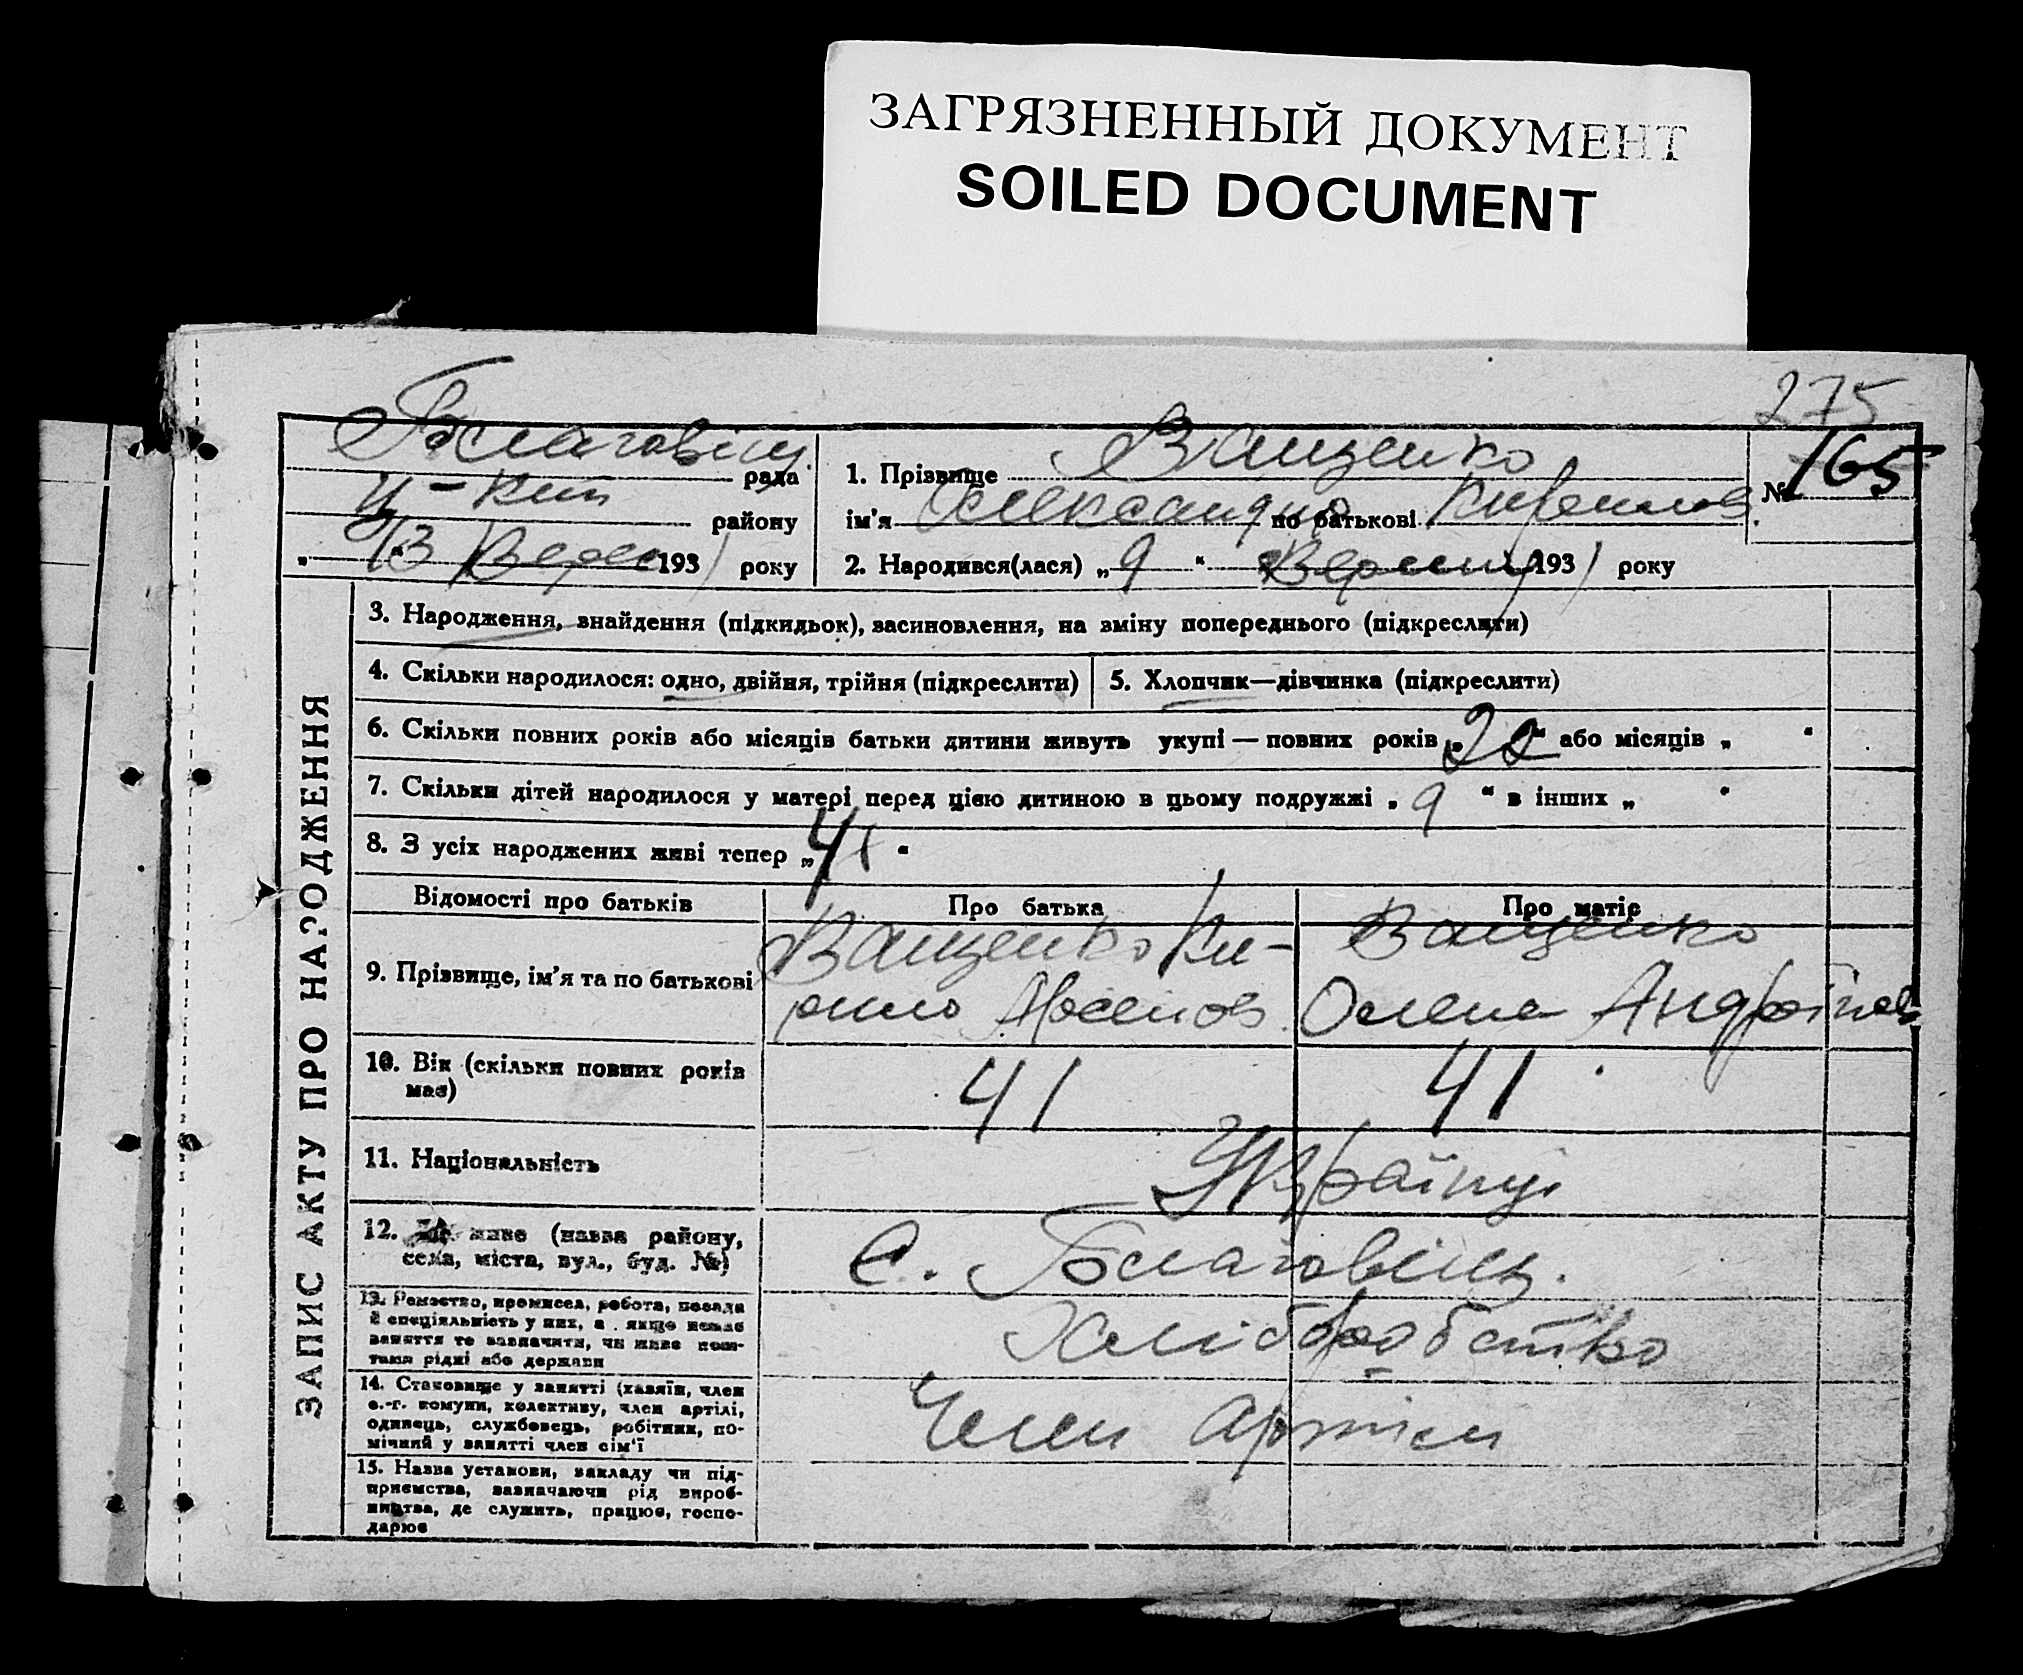 ЗАГРЯЗНЕННЫЙ ДОКУМЕНТ
SOILED DOCUMENT
275
Благовіщ. рада
району
„13“ Верес 1931 року
1. Прізвище Ващенко
№ 165
ім'я Олександр по батькові Кирилов.
2. Народився(лася) „9“ Вересня 1931 року
ЗАПИС АКТУ ПРО НАРОДЖЕННЯ
3. Народження, знайдення (підкидьок), засиновлення, на зміну попереднього (підкреслити)
4. Скільки народилося: одно, двійня, трійня (підкреслити)
5. Хлопчик—дівчинка (підкреслити)
6. Скільки повних років або місяців батьки дитини живуть укупі — повних років „22“ або місяців „ “
7. Скільки дітей народилося у матері перед цією дитиною в цьому подружжі „9“ в інших „ “
8. З усіх народжених живі тепер „4“
Відомості про батьків
Про батька
Про матір
9. Прізвище, ім'я та по батькові
Ващенко Ки-
рило Арсенов.
Ващенко
Олена Андріївна
10. Вік (скільки повних років
має)
41
41
11. Національність
Українці
12. Де живе (назва району,
села, міста, вул., буд. №)
С. Благовіщ.
13. Ремество, промисел, робота, посада
й спеціяльність у них, а якщо немає
заняття то зазначити, чи живе кош-
тами рідні або держави
Хліборобство
14. Становище у занятті (хазяїн, член
с.-г. комуни, колективу, член артілі,
одинець, службовець, робітник, по-
мічний у занятті член сім'ї
Член артіли
15. Назва установи, закладу чи під-
приємства, зазначаючи рід вироб-
ництва, де служить, працює, госпо-
дарює